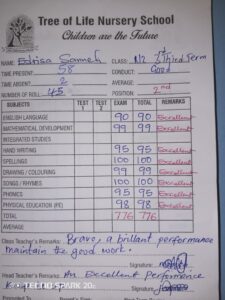 Tree of Life Nursery School
Children are the Future
NAME: Edrisa Sanneh CLASS: N2 3rd Third Term
TIME PRESENT: 58 CONDUCT: Good
TIME ABSENT: 2 AVERAGE:
NUMBER OF ROLL: 45 POSITION: 2nd
SUBJECTS TEST 1 TEST 2 EXAM TOTAL REMARKS
ENGLISH LANGUAGE 90 90 Excellent
MATHEMATICAL DEVELOPMENT 99 99 Excellent
INTEGRATED STUDIES
HAND WRITING 95 95 Excellent
SPELLINGS 100 100 Excellent
DRAWING / COLOURING 99 99 Excellent
SONGS / RHYMES 100 100 Excellent
PHONICS 95 95 Excellent
PHYSICAL EDUCATION (P.E) 98 98 Excellent
TOTAL 776 776
AVERAGE
Class Teacher's Remarks: Bravo, a brillant performance
maintain the good work. Signature
Head Teacher's Remarks: An Excellent Performance
Keep it up Signature